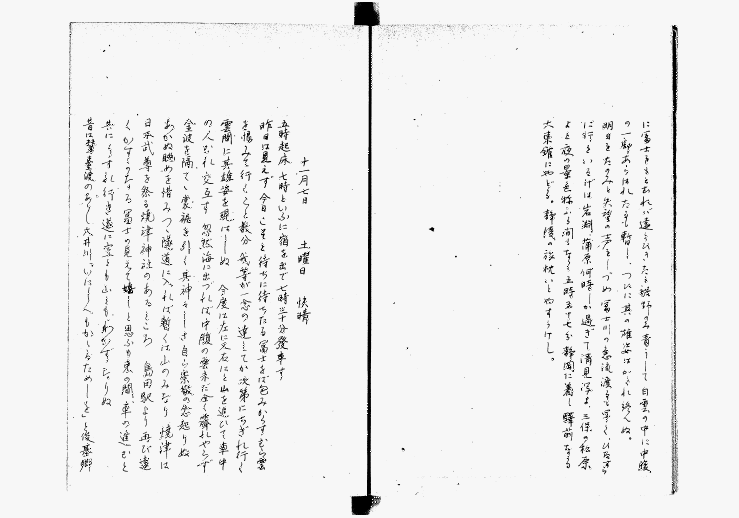 に富士をもとむれば遠くひきたる
の一部あらはれたるも暫し、つひに其の雄姿はかくれ終んぬ。
明日をたのみと失望の声をしづめ富士川の急流渡るも早く、
に行きいそげば岩淵、蒲原何時しか過ぎて清見潟よ、三保の松原
よと夜の景色 五時五十七分静岡に着し驛前なる
大東館にやどる。静陵の旅枕いとやすらけし。
十一月七日 土曜日 快晴
五時起床 七時といふに宿を出で七時三十分發車す
昨日は見えず今日こそと待ちに待ちたる富士をば包みかくすむら雲
を恨みて行くこと数分 我等が一念の達してか次第にちぎれ行く
雲間に其雄姿を現はしぬ 今度は左に又右にと山を追いて車中
の人むれ交互す 忽然海に出づれば中腹の雲未だ全く霽れやらず
金波を隔てゝ裳裾を引く其神々しさ自ら崇敬の念起りぬ
あかぬ眺めを惜みつゝ隧道に入れば暫くは山のみなり 焼津は
日本武尊を祭る焼津神社のあるところ 島田駅より再び遠
くかすかなる富士の見えて嬉しと思ふも束の間、車の進むと
共にうすれ行き遂に空とも山ともわかずなりぬ
昔は輦臺渡のありし大井川、いにしへもかゝるためしを」と俊基卿